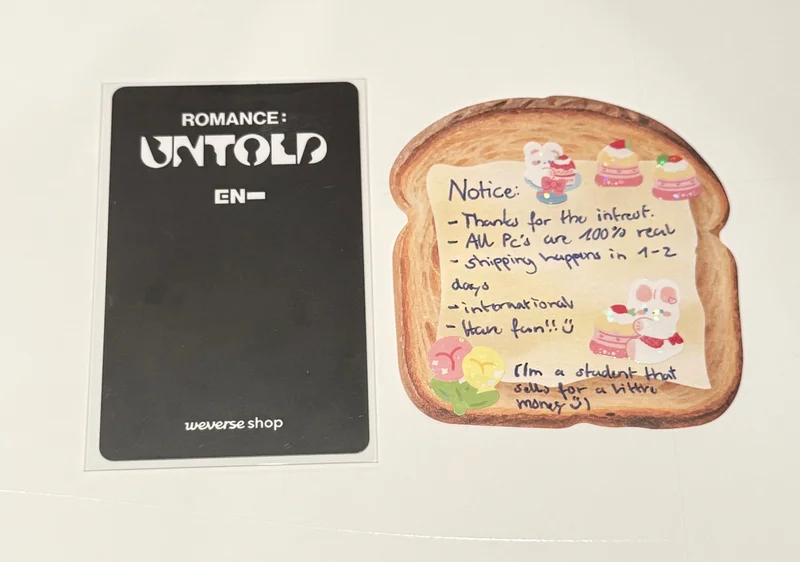 ROMANCE:
UNTOLD
EN-
weverse shop
Notice:
- Thanks for the intrest.
- All Pc's are 100% real
- shipping happens in 1-2
days
- international
- Have fun!! :)
(I'm a student that
sells for a little
money :))